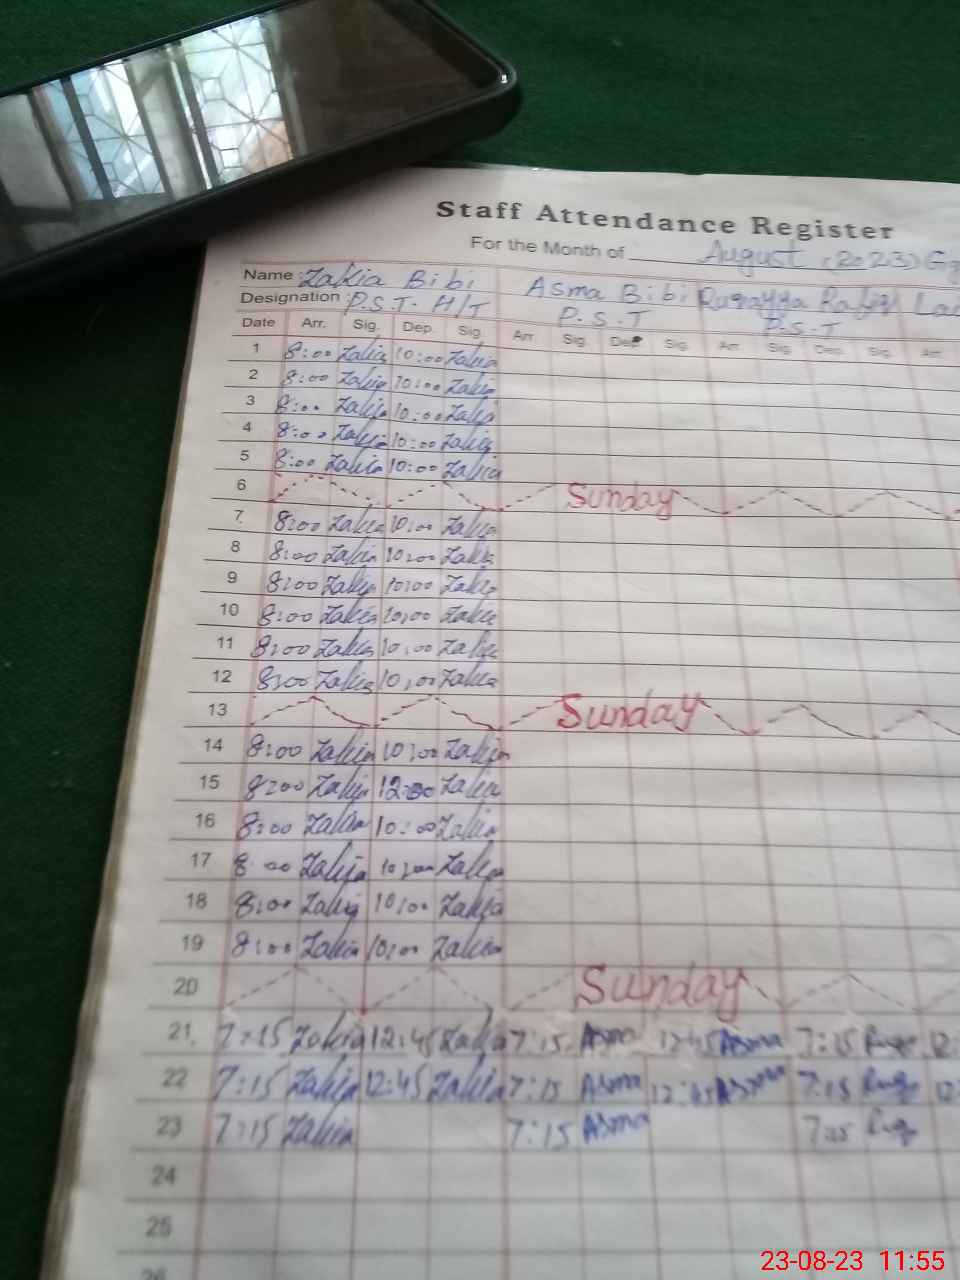 Staff Attendance Register
For the Month of August (2023)
Name: Zakia Bibi Asma Bibi
Designation: P.S.T. H/T P.S.T P.S.T
Date Arr. Sig. Dep. Sig. Arr. Sig. Dep. Sig. Arr. Sig. Dep. Sig. Arr.
1 8:00 Zakia 10:00 Zakia
2 8:00 Zakia 10:00 Zakia
3 8:00 Zakia 10:00 Zakia
4 8:00 Zakia 10:00 Zakia
5 8:00 Zakia 10:00 Zakia
6 Sunday
7 8:00 Zakia 10:00 Zakia
8 8:00 Zakia 10:00 Zakia
9 8:00 Zakia 10:00 Zakia
10 8:00 Zakia 10:00 Zakia
11 8:00 Zakia 10:00 Zakia
12 8:00 Zakia 10:00 Zakia
13 Sunday
14 8:00 Zakia 10:00 Zakia
15 8:00 Zakia 12:00 Zakia
16 8:00 Zakia 10:00 Zakia
17 8:00 Zakia 10:00 Zakia
18 8:00 Zakia 10:00 Zakia
19 8:00 Zakia 10:00 Zakia
20 Sunday
21 7:15 Zakia 12:45 Zakia 7:15 Asma 12:45 Asma 7:15
22 7:15 Zakia 12:45 Zakia 7:15 Asma 12:45 Asma 7:15
23 7:15 Zakia 7:15 Asma 7:15
24
25
26
23-08-23 11:55